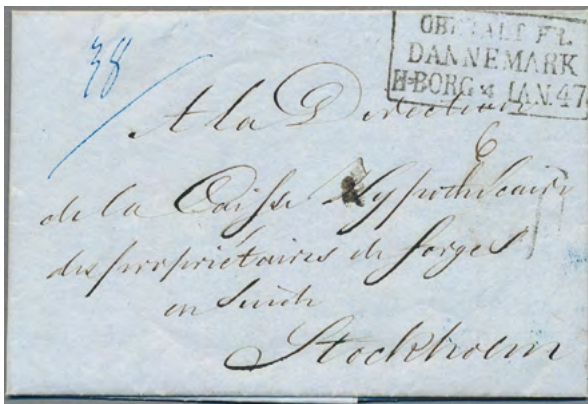 38
OBETALT FR.
DANNEMARK
H-BORG 4 JAN. 47
A la Direction
6
de la Caisse Hypothécaire
des propriétaires de forges
en Suède
Stockholm